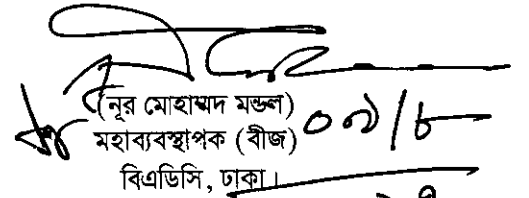 (নূর মোহাম্মদ মন্ডল)
মহাব্যবস্থাপক (বীজ) ০৯/৮
বিএডিসি, ঢাকা।